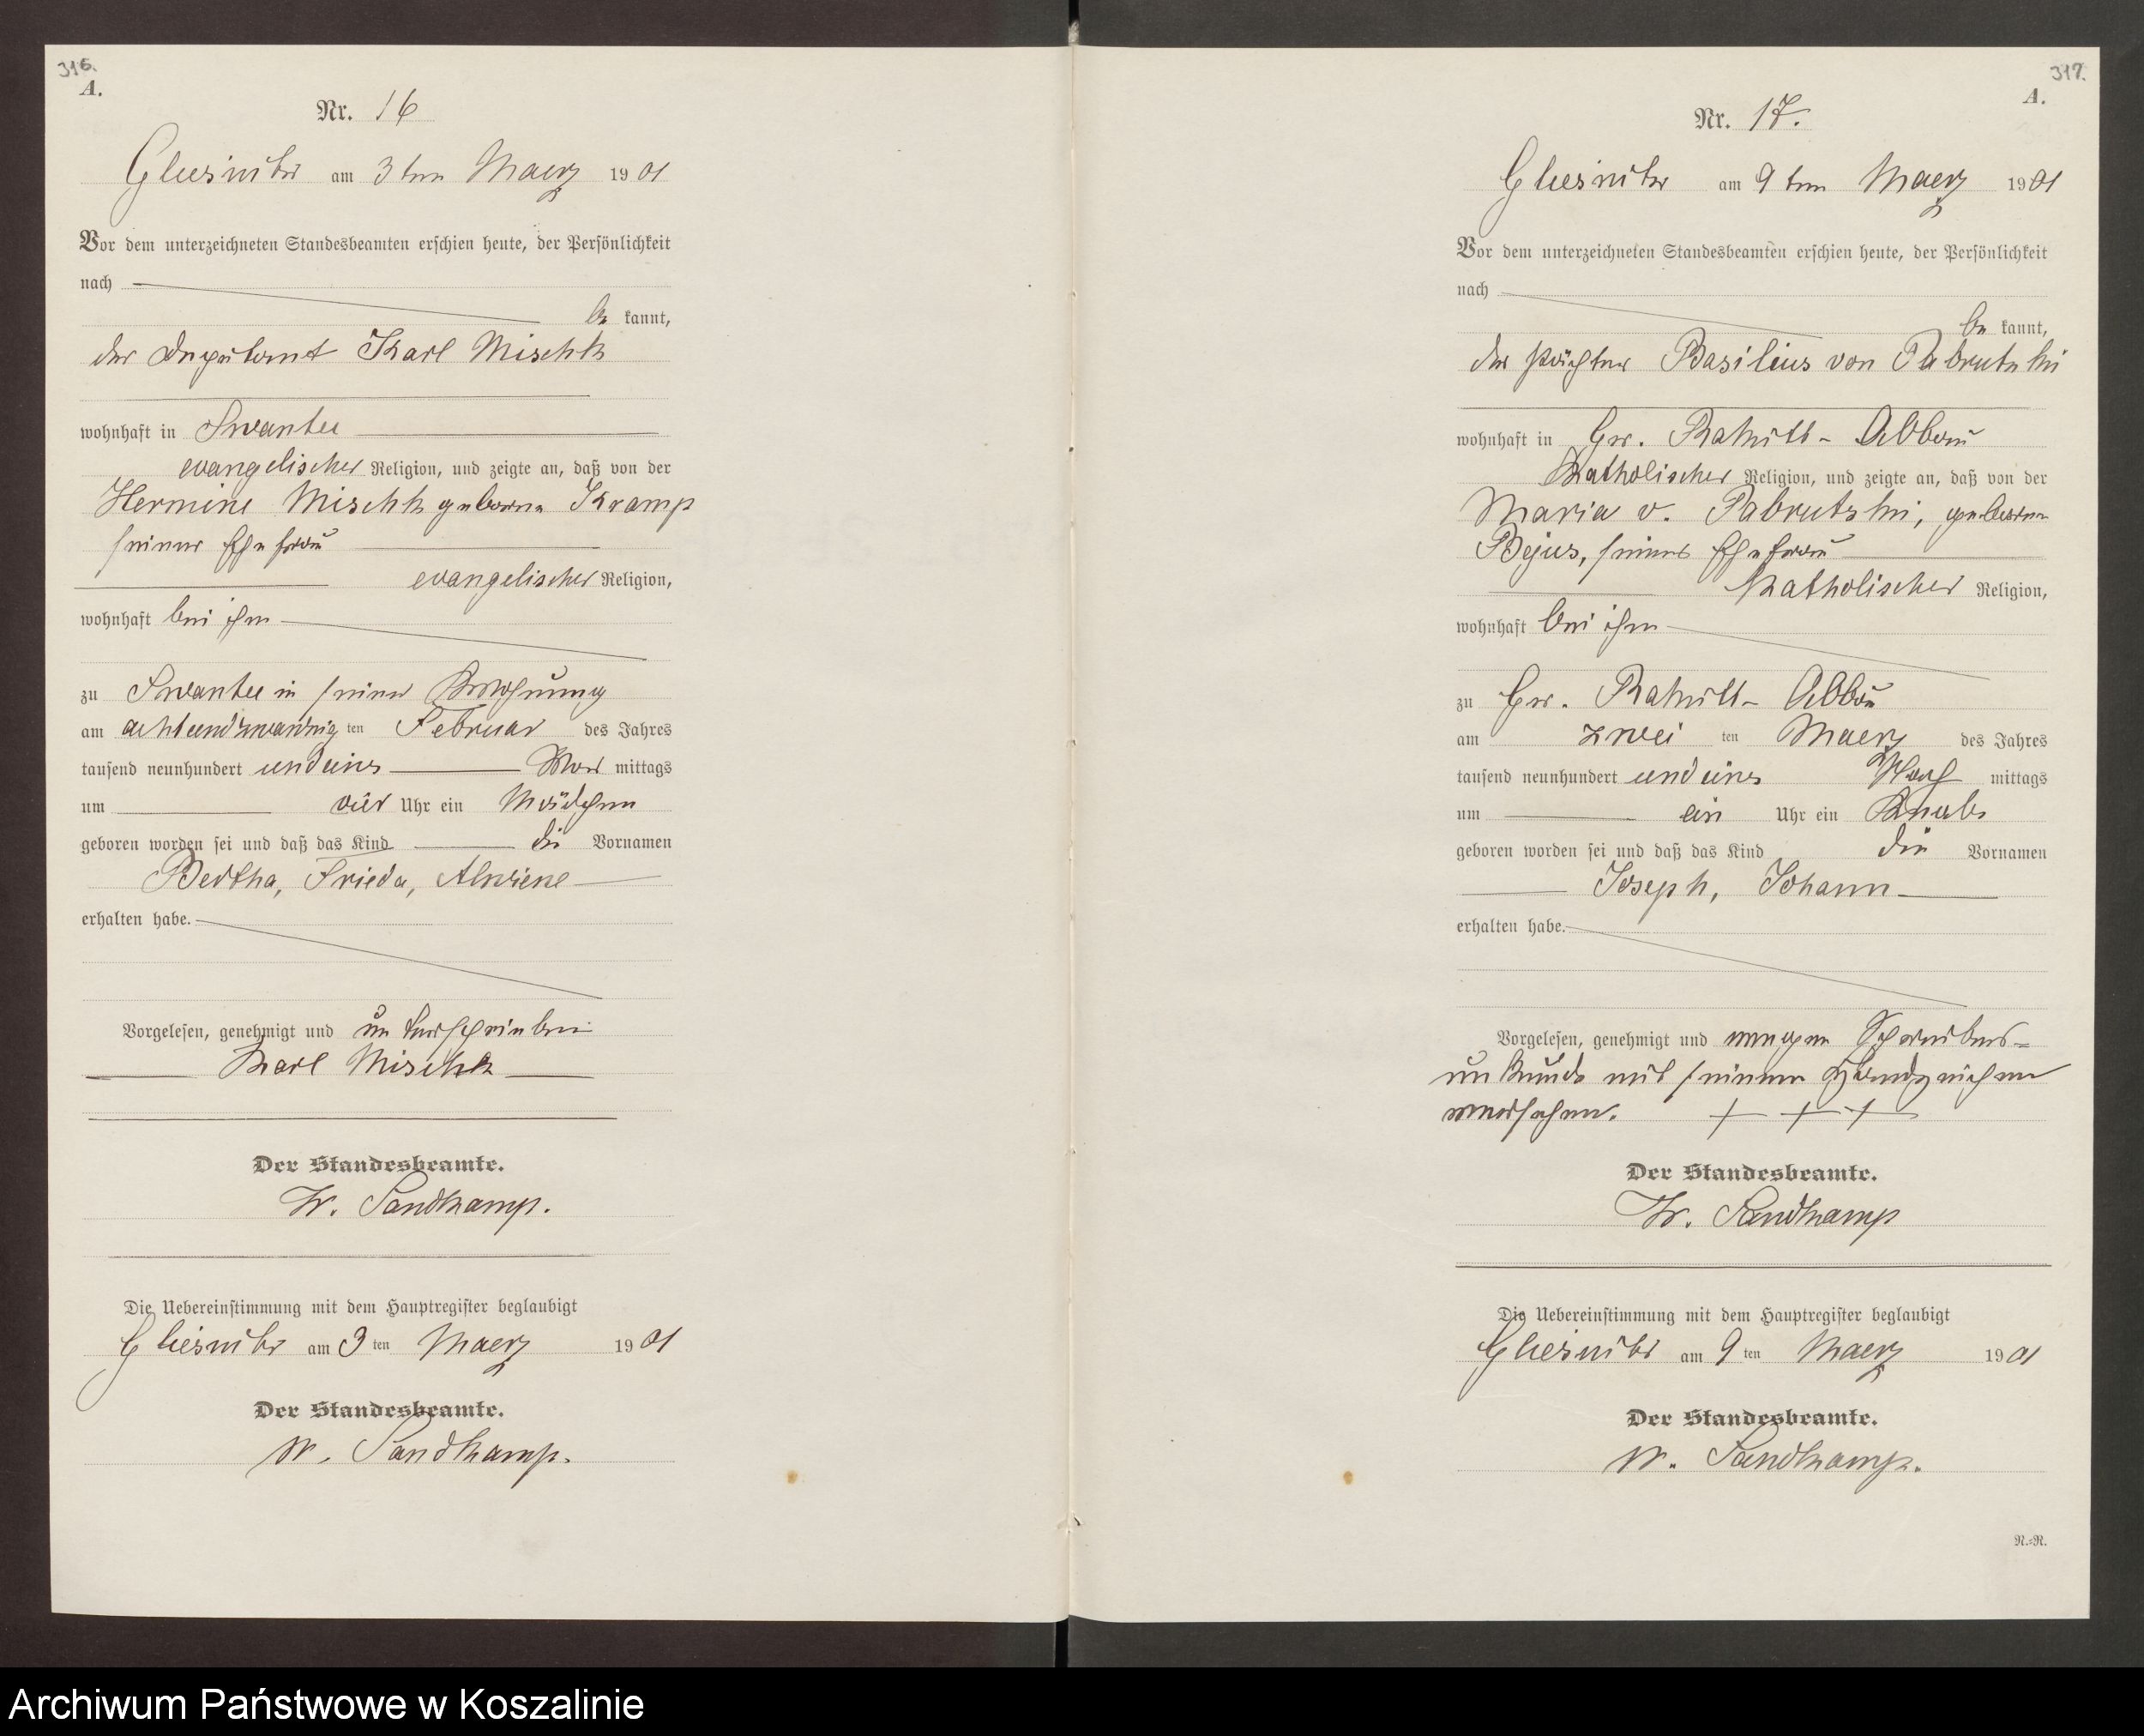 316.
A.
Nr. 16
Gliesnitz am 3ten Maerz 1901
Vor dem unterzeichneten Standesbeamten erschien heute, der Persönlichkeit
nach
be kannt,
der Deputant Karl Mischk
wohnhaft in Swantee
evangelischer Religion, und zeigte an, daß von der
Hermine Mischk geborne Kramp
seiner Ehefrau
evangelischer Religion,
wohnhaft bei ihm
zu Swantee in seiner Wohnung
am achtundzwanzig ten Februar des Jahres
tausend neunhundert undeins Vor mittags
um vier Uhr ein Mädchen
geboren worden sei und daß das Kind die Vornamen
Bertha, Frieda, Alwiene
erhalten habe.
Vorgelesen, genehmigt und unterschrieben
Karl Mischk
Der Standesbeamte.
W. Sandkamp.
Die Uebereinstimmung mit dem Hauptregister beglaubigt
Gliesnitz am 3 ten Maerz 1901
Der Standesbeamte.
W. Sandkamp.
317.
A.
Nr. 17.
Gliesnitz am 9ten Maerz 1901
Vor dem unterzeichneten Standesbeamten erschien heute, der Persönlichkeit
nach
be kannt,
der Pächter Basilius von Pabrutzki
wohnhaft in Gr. Rakitt - Abbau
Katholischer Religion, und zeigte an, daß von der
Maria v. Pabrutzki, geborne
Bejus, seiner Ehefrau
Katholischer Religion,
wohnhaft bei ihm
zu Gr. Rakitt - Abbau
am zwei ten Maerz des Jahres
tausend neunhundert undeins Nach mittags
um ein Uhr ein Knabe
geboren worden sei und daß das Kind die Vornamen
Joseph, Johann
erhalten habe.
Vorgelesen, genehmigt und wegen Schreibens-
unkunde mit seinem Handzeichen
versehen. + + +
Der Standesbeamte.
W. Sandkamp
Die Uebereinstimmung mit dem Hauptregister beglaubigt
Gliesnitz am 9 ten Maerz 1901
Der Standesbeamte.
W. Sandkamp.
N.=N.
Archiwum Państwowe w Koszalinie